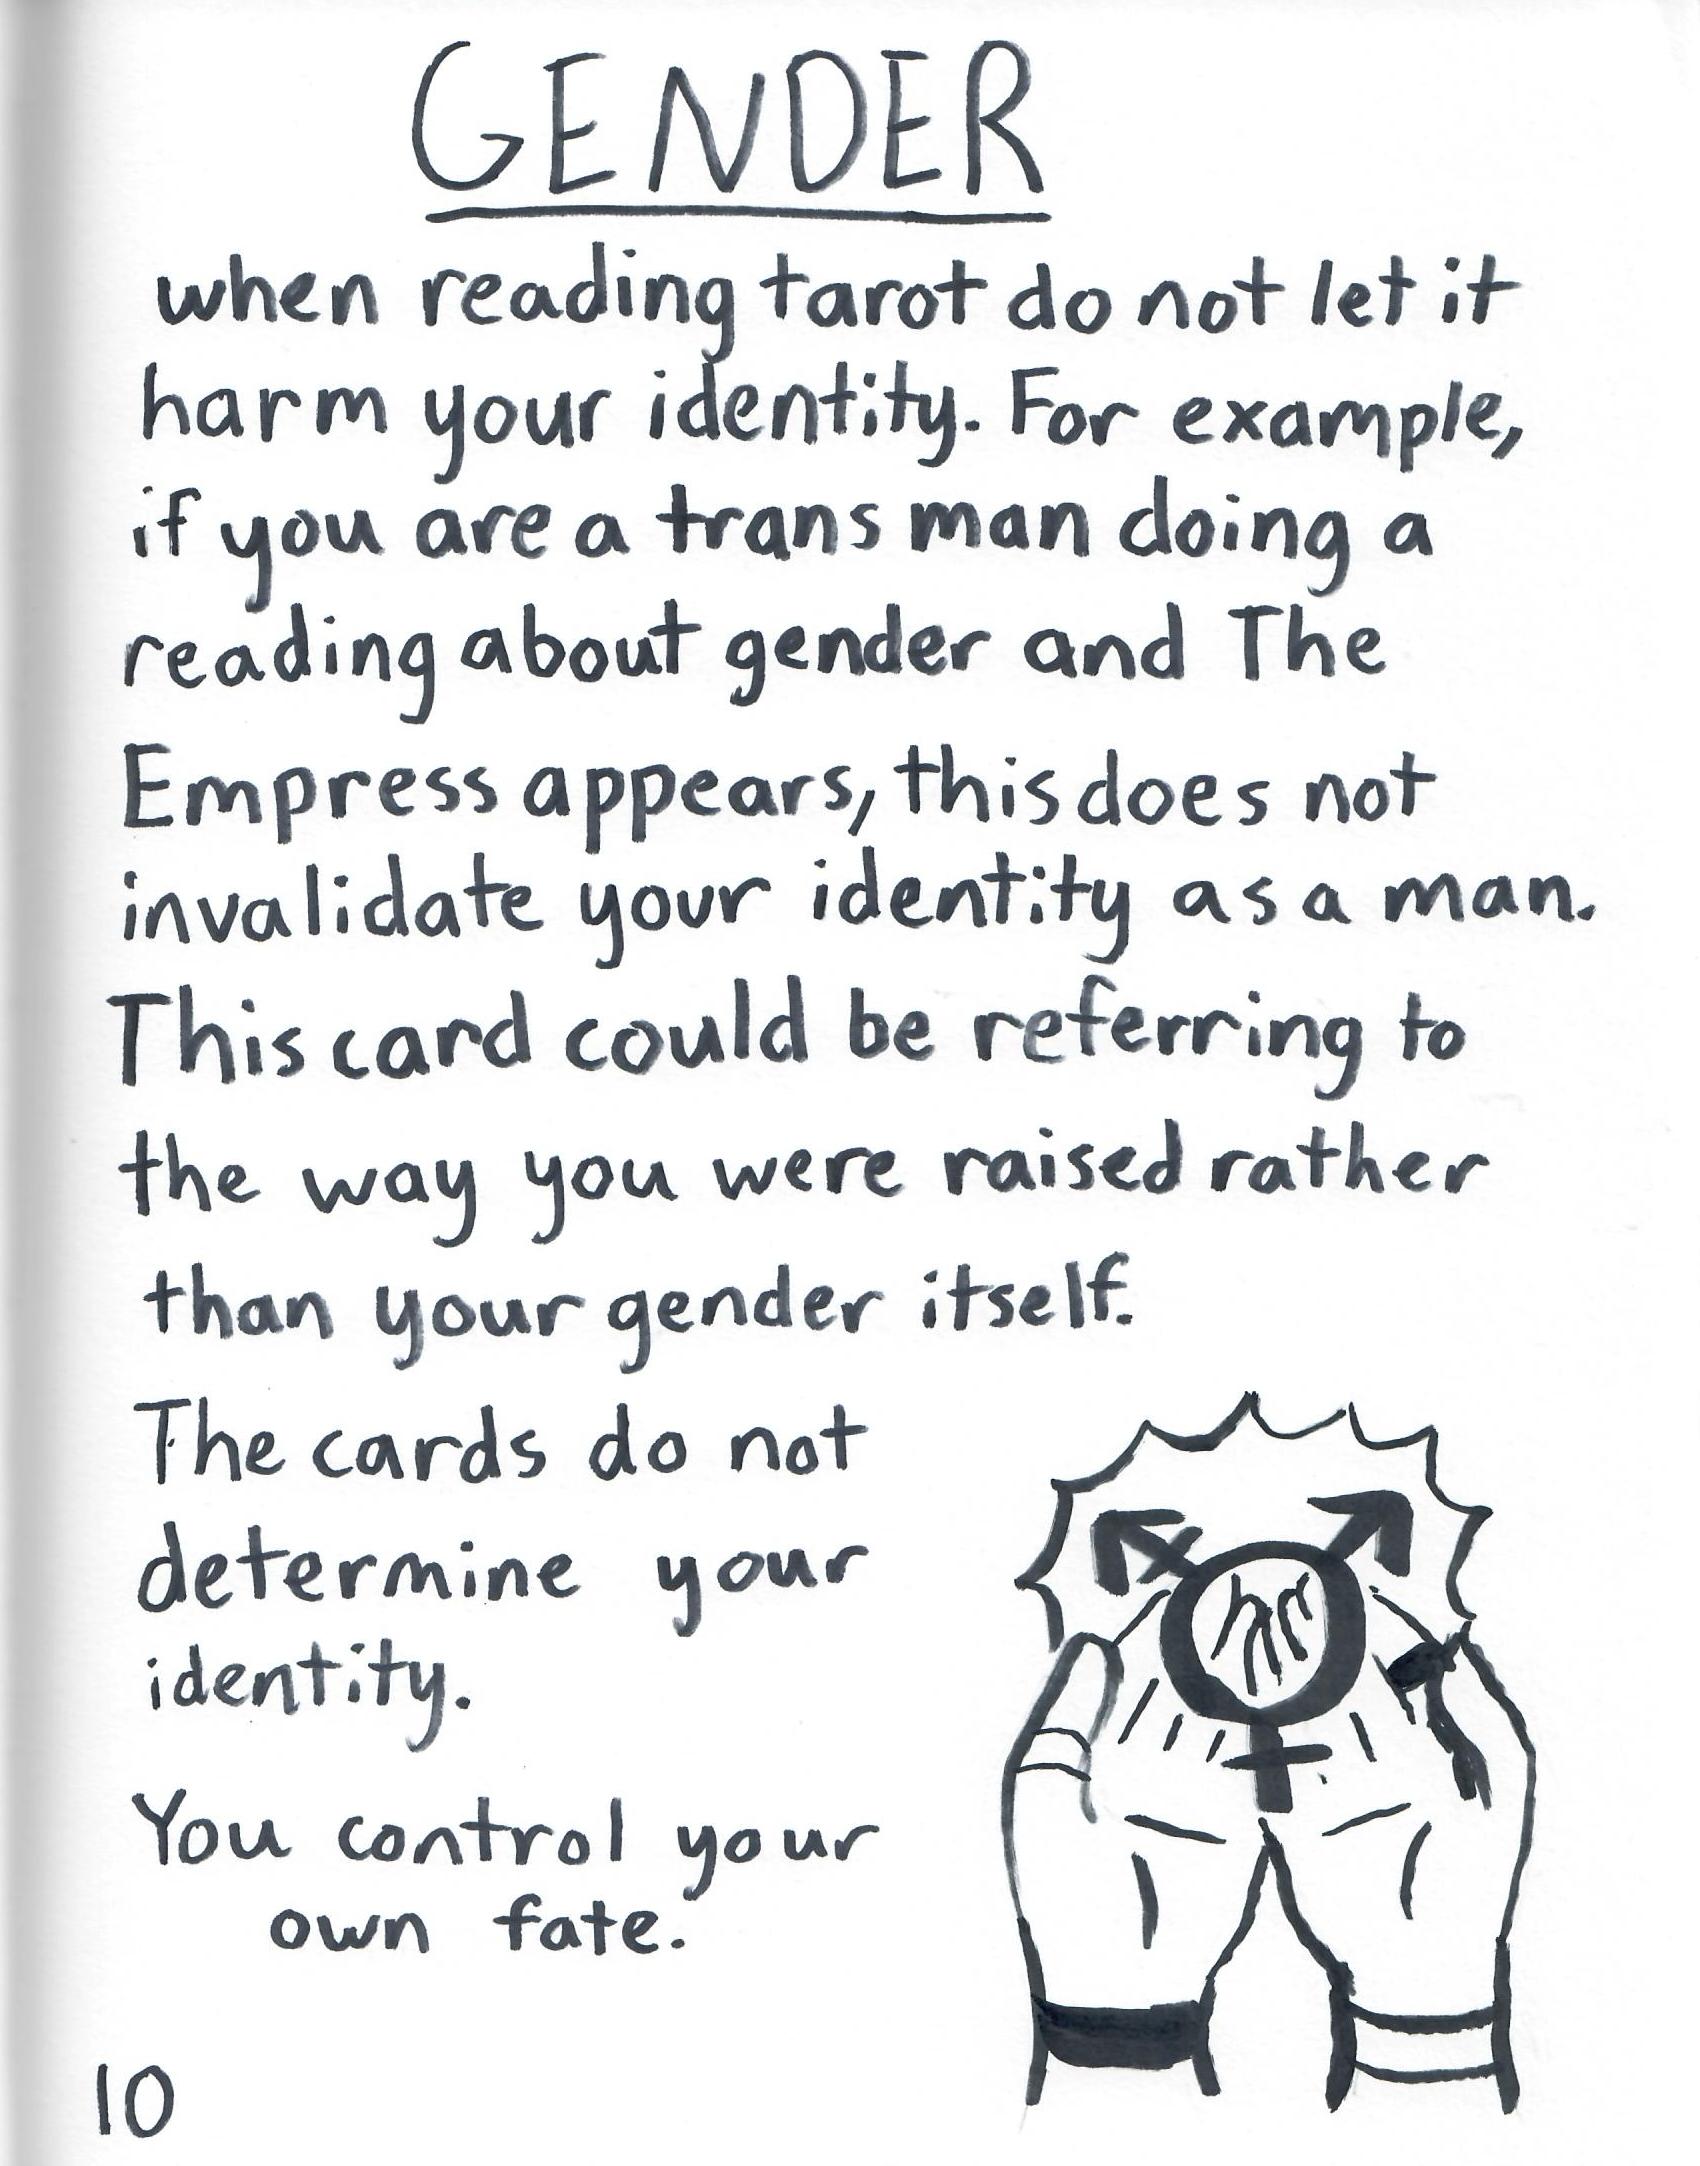 GENDER
when reading tarot do not let it
harm your identity. For example,
if you are a trans man doing a
reading about gender and The
Empress appears, this does not
invalidate your identity as a man.
This card could be referring to
the way you were raised rather
than your gender itself.
The cards do not
determine your
identity.
You control your
own fate.
10